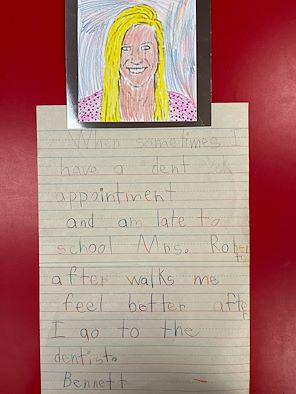 When sometimes I
have a dent
appointment
and am late to
school Mrs. Roper
after walks me
feel better after
I go to the
dentist.
Bennett